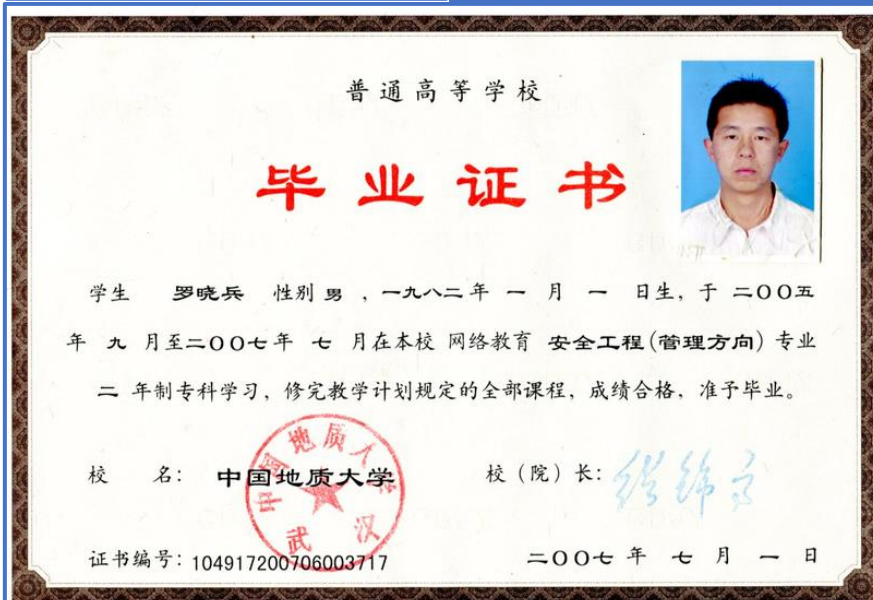 普通高等学校
毕业证书
学生 罗晓兵 性别 男 ，一九八二年 一 月 一 日生，于 二00五
年 九 月至二00七年 七 月在本校 网络教育 安全工程(管理方向) 专业
二 年制专科学习，修完教学计划规定的全部课程，成绩合格，准予毕业。
校 名： 中国地质大学
校（院）长：
中国地质大学
武汉
证书编号：104917200706003717
二00七 年 七 月 一 日